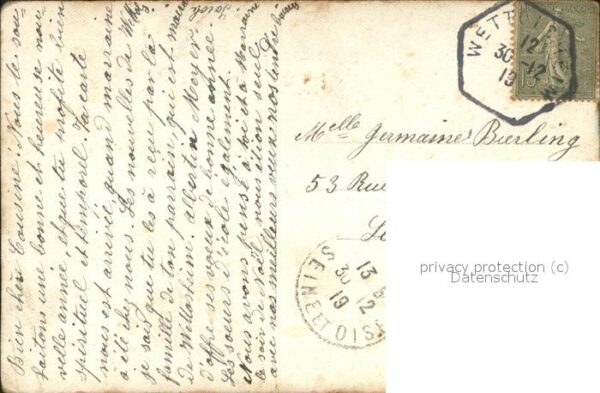 Bien chère Cousine. Nous te sou-
haitons une bonne et heureuse nou-
velle année, et que tu profite bien
spirituel et temporel. Ta carte
nous est arrivée quand marraine
a été chez nous. Les nouvelles de
je sais que tu les à reçue par la
famille de ton parrain, qui est
de Wettolsheim, albertine Meyer
d'offre ses vœux de bonne année
Les soeurs d'école également.
Nous avons pensé à toi et à marraine
le soir de Noël, nous étion seul
avec nos meilleurs vœux nos tendre baisers
Jacob
WETTOLSHEIM
12
30-12
19
15
Melle Germaine Bierling
53 Rue
SEINE ET OISE
13
30 12
19
privacy protection (c)
Datenschutz